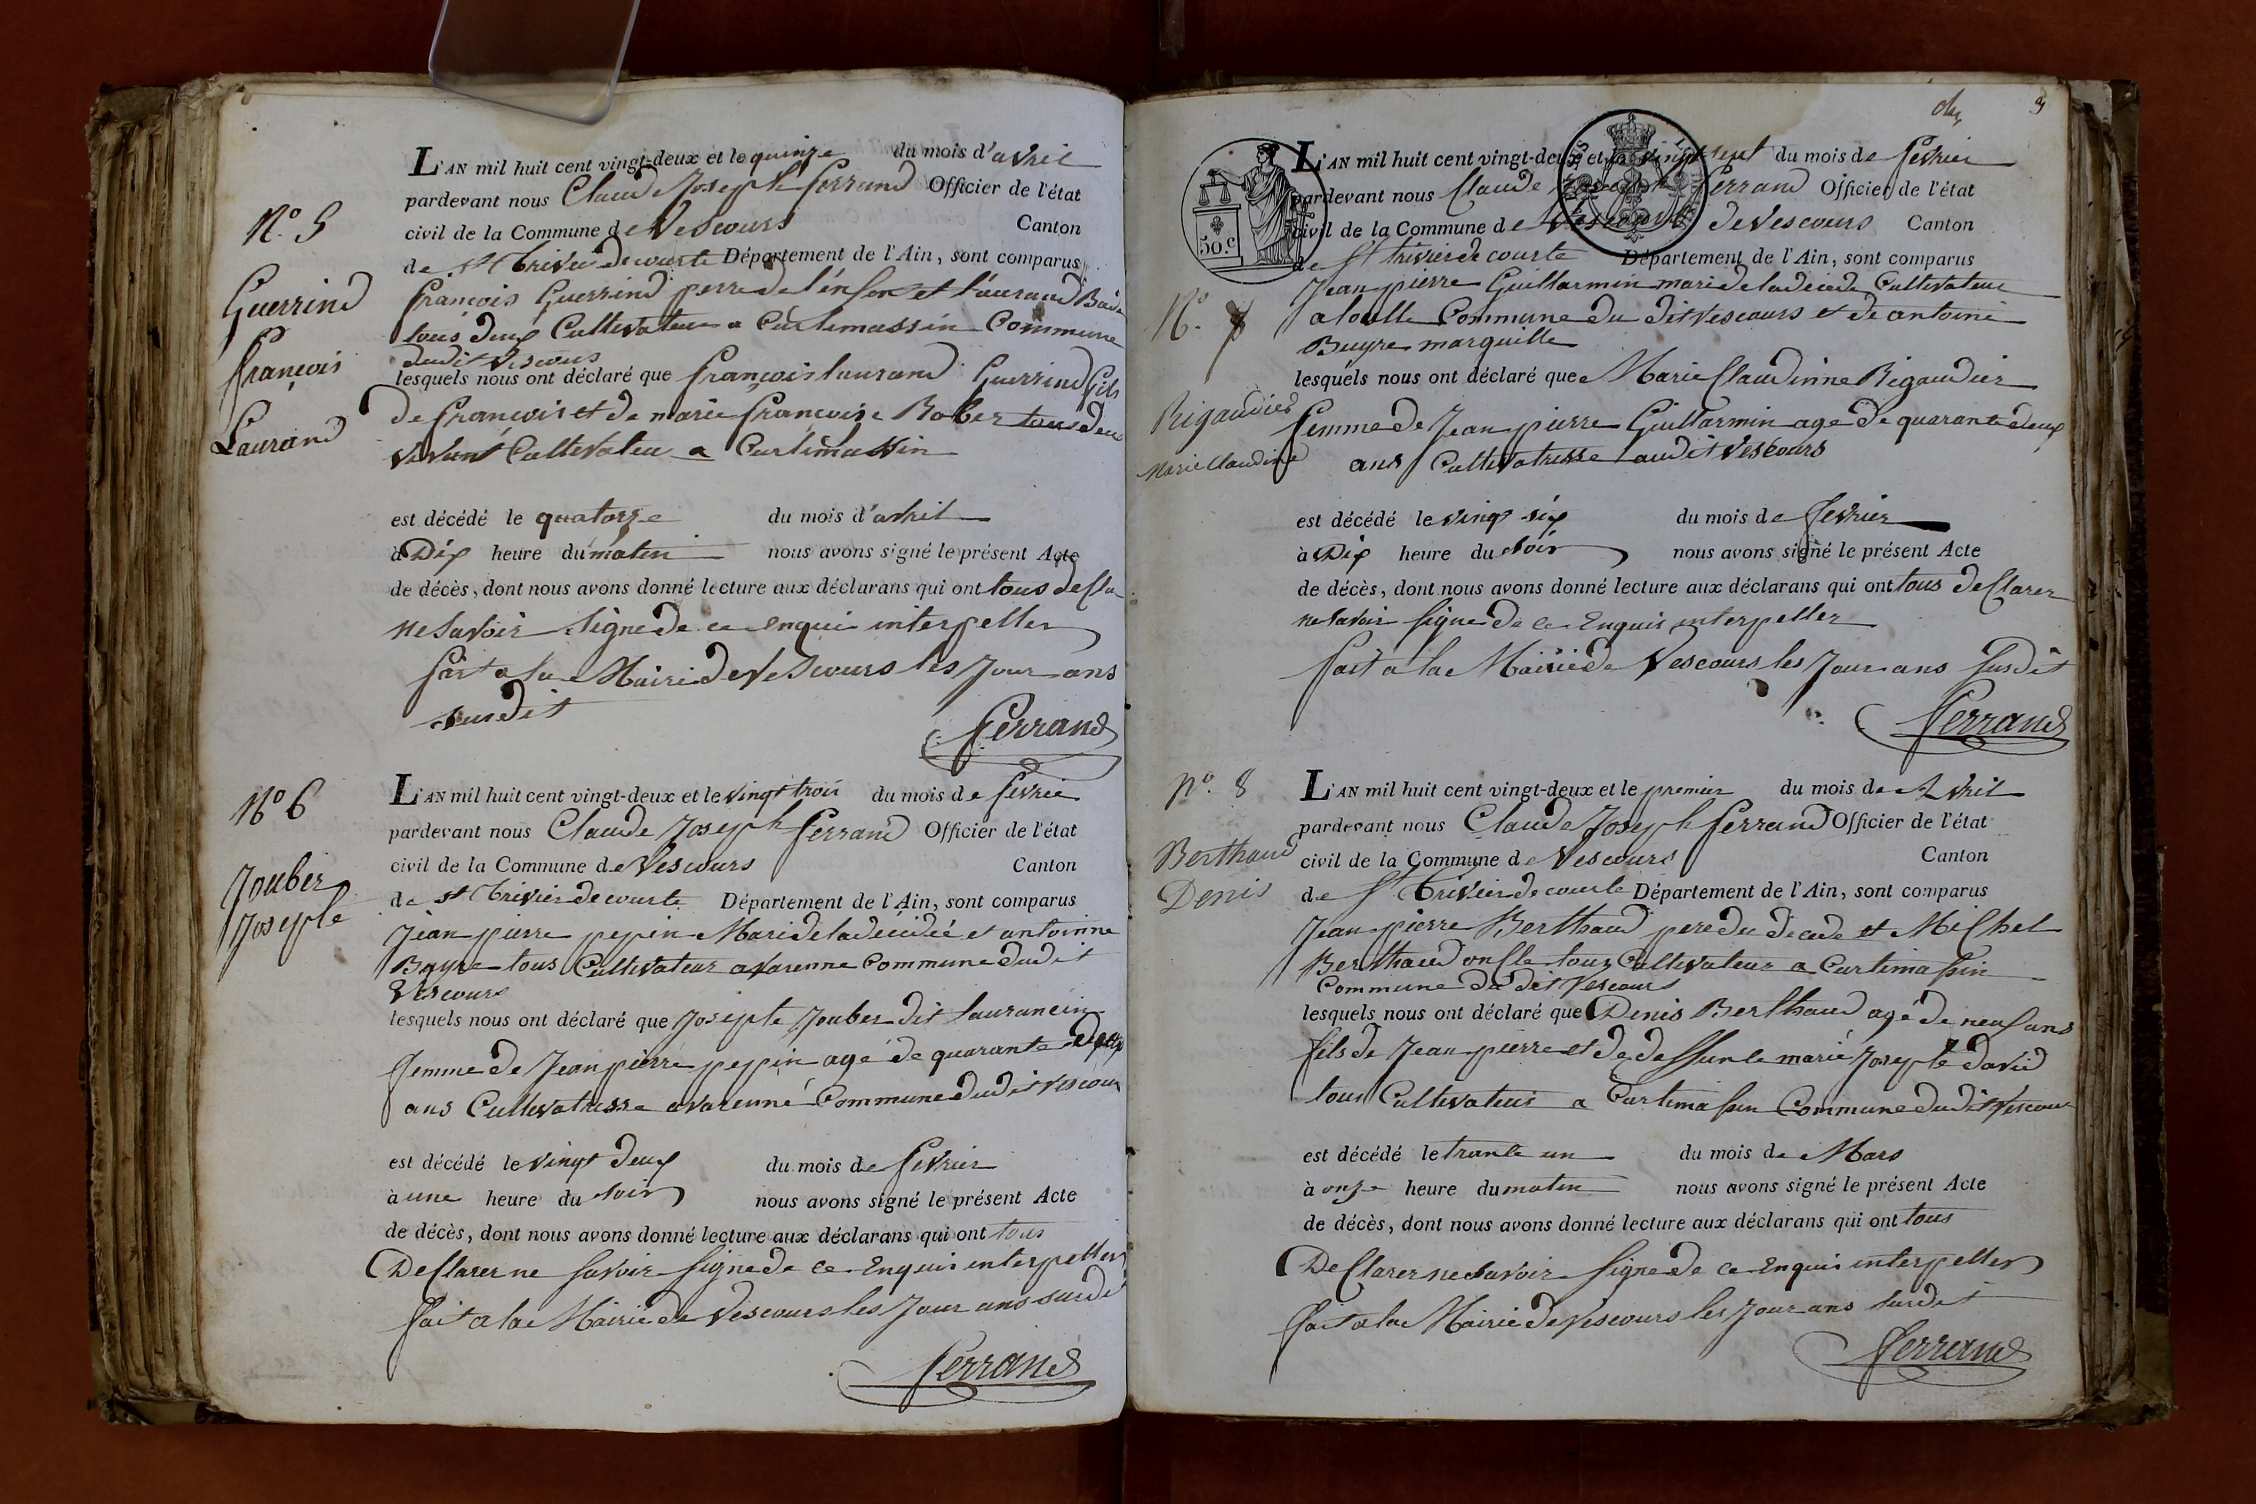 N.° 5
Guerrind
françois
Laurand
L'AN mil huit cent vingt-deux et le quinze du mois d'avril
pardevant nous Claude Joseph ferrand Officier de l'état
civil de la Commune de Vescours Canton
de st trivier de courte Département de l'Ain, sont comparus
françois Guerrind perre de l'enfen et l'aurand
tous deux Cultivateur a Curtimassin Commune
dudit Vescours
lesquels nous ont déclaré que françois laurand Guerrind fils
de françois et de marie françoise Rober tous deux
vivant Cultivateu a Curtimassin
est décédé le quatorze du mois d'avril
à Dix heure du matin nous avons signé le présent Acte
de décès, dont nous avons donné lecture aux déclarans qui ont tous declu
ne Savoir Signe de ce enquis interpeller
fait a la Mairi de Vescours les Jour ans
susdit
ferrand
N° 6
Jouber
Josephte
L'AN mil huit cent vingt-deux et le vingt trois du mois de fevrie
pardevant nous Claude Joseph ferrand Officier de l'état
civil de la Commune de Vescours Canton
de st trivier de courte Département de l'Ain, sont comparus
Jean pierre pepin Mari de la décidée et antoinne
Buyre tous Cultivateur a Varenne Commune dudit
Vescours
lesquels nous ont déclaré que Josephte Jouber dit Laurancin
femme de Jean pierre peppin agé de quarante deux
ans Cultivatrisse a varenne Commune dudit vescour
est décédé le vingt deux du mois de fevrier
à une heure du soir nous avons signé le présent Acte
de décès, dont nous avons donné lecture aux déclarans qui ont tous
Declarer ne Savoir Signe de ce Enquis interpeller
fait a la Mairie de Vescours les Jour ans susdit
ferrand
9
50.c
N.° 7
Rigaudier
Marie Claudine
L'AN mil huit cent vingt-deux et le vingt sept du mois de fevrier
pardevant nous Claude Joseph ferrand Officier de l'état
civil de la Commune de Vescours de Vescours Canton
de St trivier de courte Département de l'Ain, sont comparus
Jean pierre Guillarmin mari de la décéde Cultivateur
a loulle Commune du dit Vescours et de antoine
Buyre marguille
lesquels nous ont déclaré que Marie Claudinne Rigaudier
femme de Jean pierre Guillarmin age de quarante deux
ans Cultivatrisse audit Vescours
est décédé le vingt six du mois de fevrier
à Dix heure du soir nous avons signé le présent Acte
de décès, dont nous avons donné lecture aux déclarans qui ont tous declarer
ne Savoir Signe de ce Enquis interpeller
fait a la Mairie de Vescours les Jour ans susdit
ferrand
N.° 8
Berthaud
Denis
L'AN mil huit cent vingt-deux et le premier du mois de Avril
pardevant nous Claude Joseph ferrand Officier de l'état
civil de la Commune de Vescours Canton
de St trivier de courte Département de l'Ain, sont comparus
Jean pierre Berthaud pere du décede et Michel
Berthaud oncle tous Cultivateur a Curtimassin
Commune du dit Vescours
lesquels nous ont déclaré que Denis Berthaud agé de neuf ans
fils de Jean pierre et de deffunte marie Josephte david
tous Cultivateur a Curtimassin Commune dudit Vescour
est décédé le trante un du mois de Mars
à onze heure du matin nous avons signé le présent Acte
de décès, dont nous avons donné lecture aux déclarans qui ont tous
Declarer ne Savoir Signe de ce Enquis interpeller
fait a la Mairie de Vescours les Jour ans susdit
ferrand